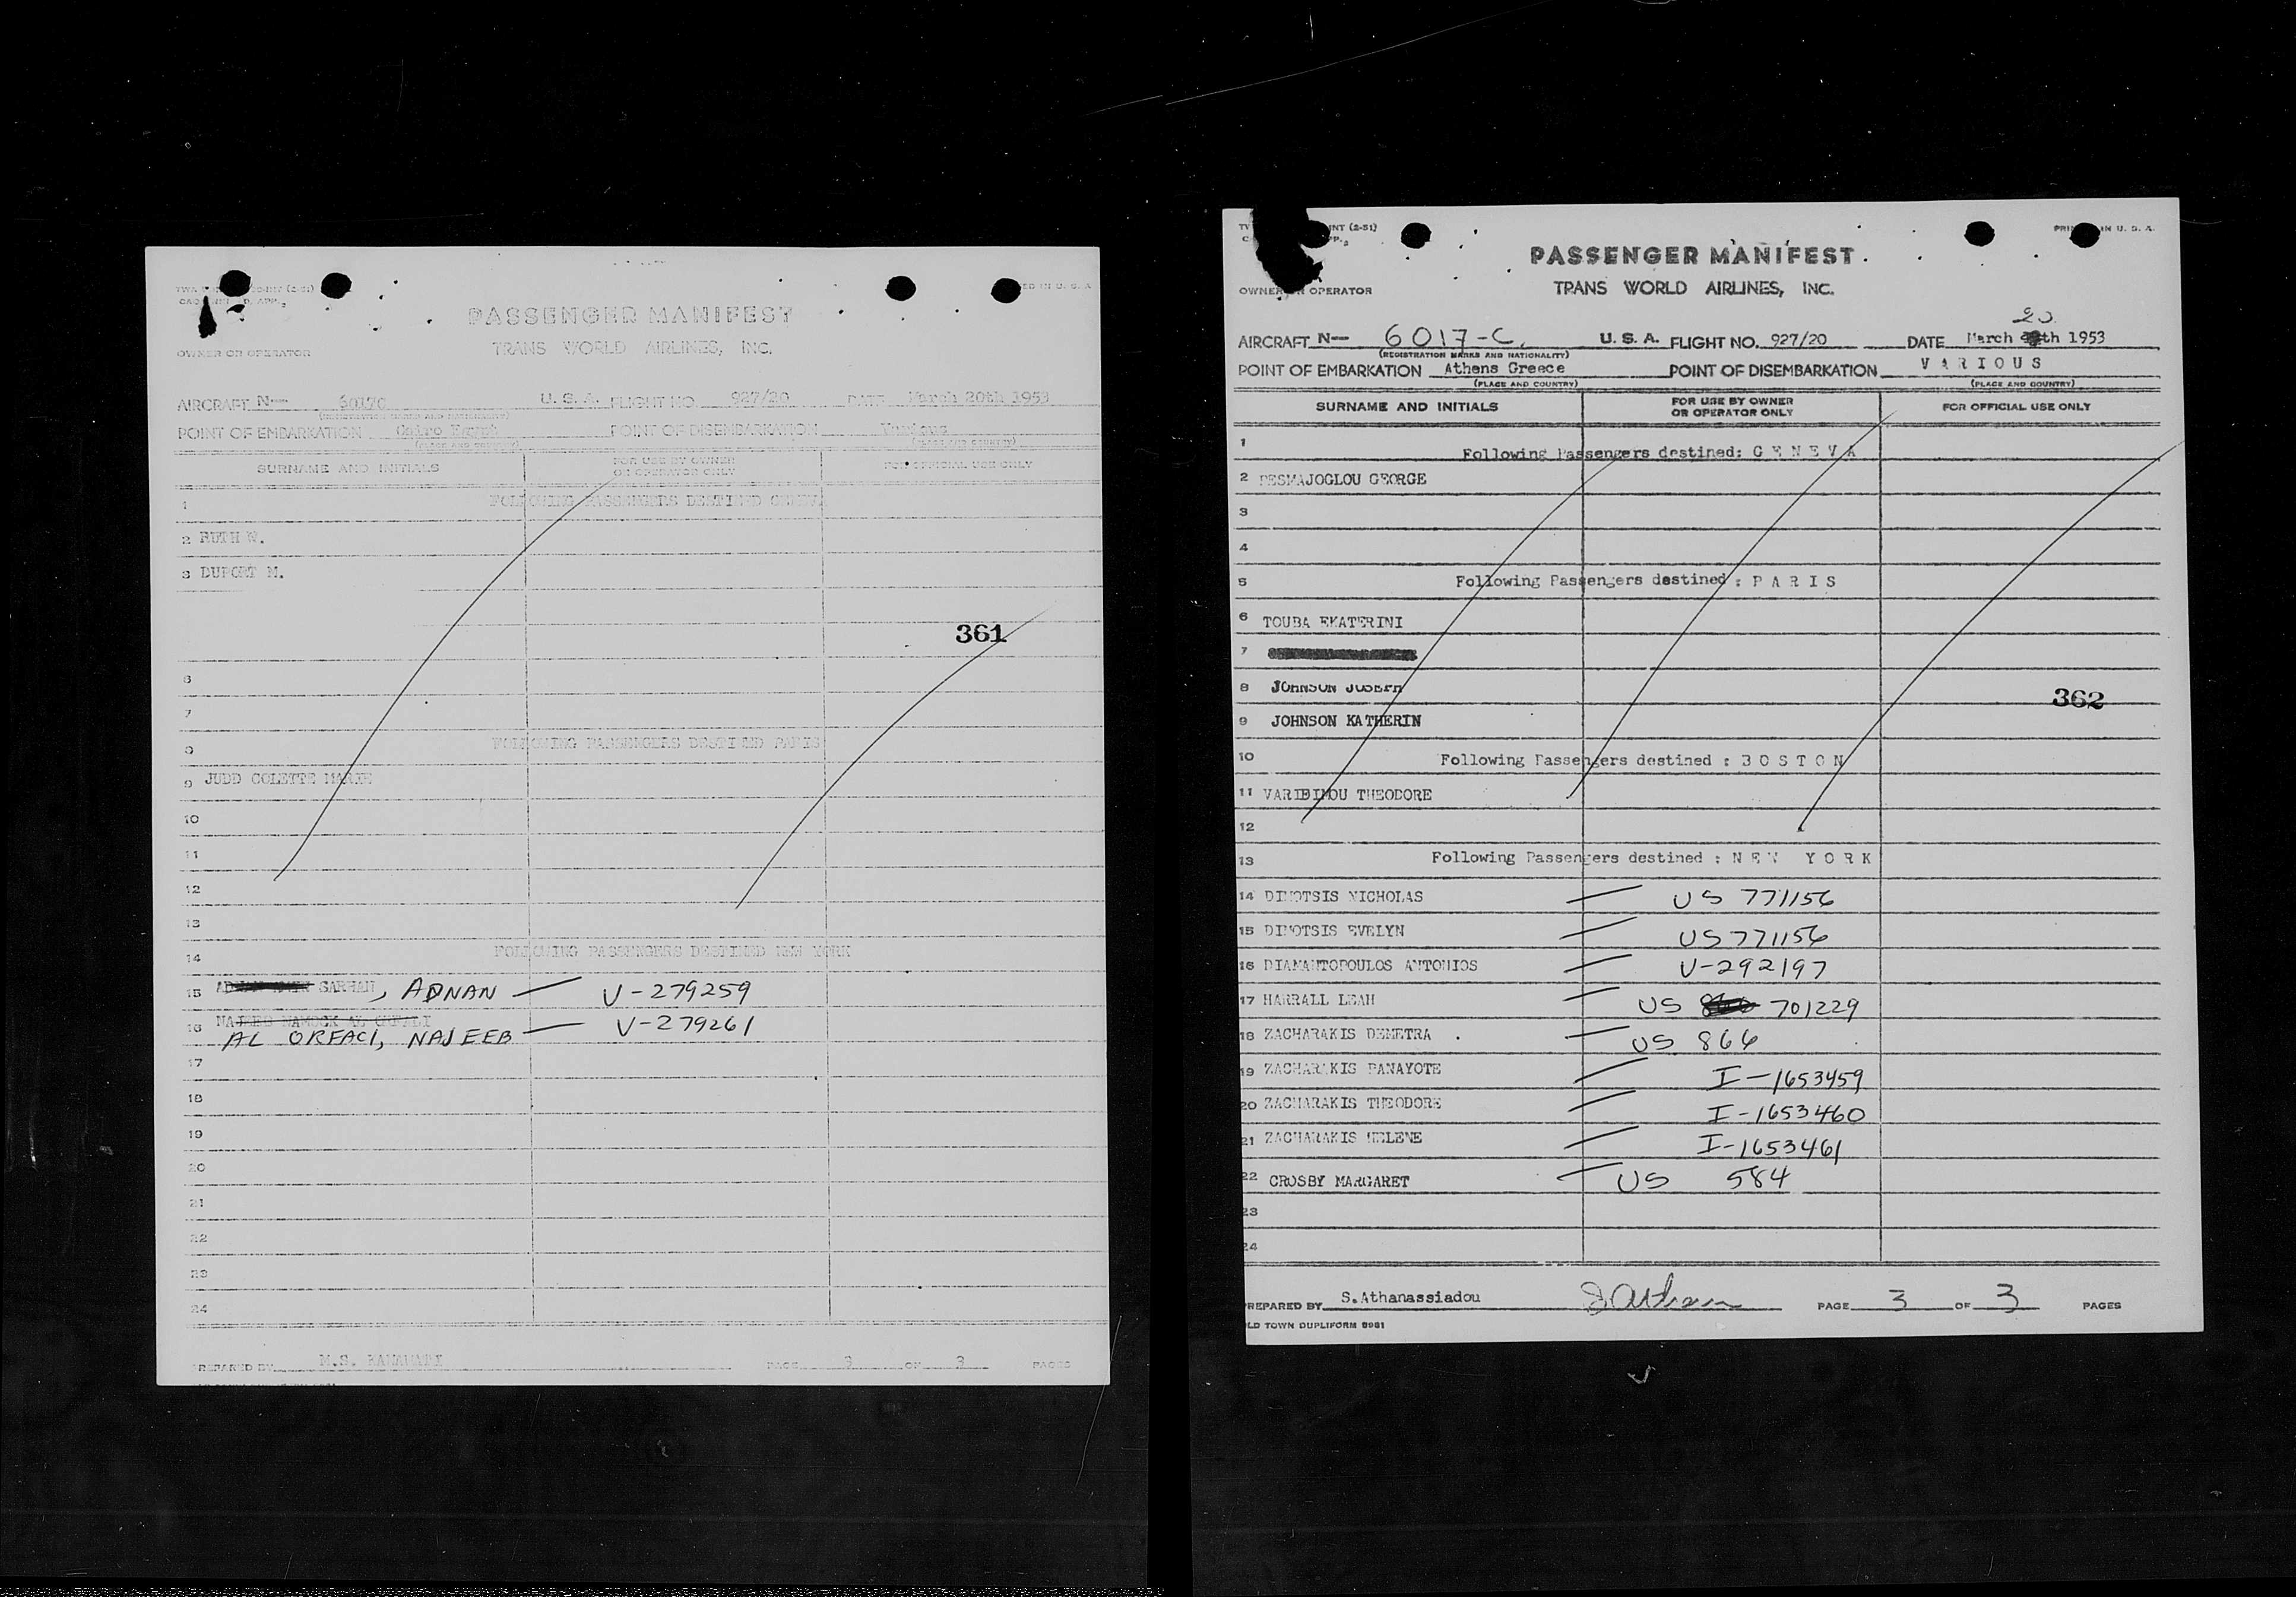 PASSENGER MANIFEST
TRANS WORLD AIRLINES, INC.
OWNER OR OPERATOR
AIRCRAFT N— 6017C U. S. A. FLIGHT NO. 927/20 DATE March 20th 1953
(REGISTRATION MARKS AND NATIONALITY)
POINT OF EMBARKATION Cairo Egypt POINT OF DISEMBARKATION Various
(PLACE AND COUNTRY) (PLACE AND COUNTRY)
SURNAME AND INITIALS FOR USE BY OWNER OR OPERATOR ONLY FOR OFFICIAL USE ONLY
1 FOLLOWING PASSENGERS DESTINED GENEVA
2 RUTH W.
3 DUPORT M.
361
6
7
8 FOLLOWING PASSENGERS DESTINED PARIS
9 JUDD COLETTE MARIE
10
11
12
13
14 FOLLOWING PASSENGERS DESTINED NEW YORK
15 SARHAN, ADNAN — V-279259
16 AL ORFACI, NAJEEB — V-279261
17
18
19
20
21
22
23
24
PREPARED BY M.S. PAGE 3 OF 3 PAGES
PRINTED IN U. S. A.
PASSENGER MANIFEST
TRANS WORLD AIRLINES, INC.
OWNER OR OPERATOR
AIRCRAFT N— 6017-C, U. S. A. FLIGHT NO. 927/20 DATE March 20 th 1953
(REGISTRATION MARKS AND NATIONALITY)
POINT OF EMBARKATION Athens Greece POINT OF DISEMBARKATION VARIOUS
(PLACE AND COUNTRY) (PLACE AND COUNTRY)
SURNAME AND INITIALS FOR USE BY OWNER OR OPERATOR ONLY FOR OFFICIAL USE ONLY
1 Following Passengers destined: GENEVA
2 PESMAJOGLOU GEORGE
3
4
5 Following Passengers destined : PARIS
6 TOUBA EKATERINI
7
8 JOHNSON JOSEPH
362
9 JOHNSON KATHERIN
10 Following Passengers destined : BOSTON
11 THEODORE
12
13 Following Passengers destined : NEW YORK
14 DIMOTSIS NICHOLAS — US 771156
15 DIMOTSIS EVELYN — US 771156
16 DIAMANTOPOULOS ANTONIOS — V-292197
17 HARRALL LEAH — US 701229
18 ZACHARAKIS DEMETRA . — US 866
19 ZACHARAKIS PANAYOTE — I-1653459
20 ZACHARAKIS THEODORE — I-1653460
21 ZACHARAKIS HELENE — I-1653461
22 CROSBY MARGARET — US 584
23
24
PREPARED BY S.Athanassiadou PAGE 3 OF 3 PAGES
OLD TOWN DUPLIFORM 8981